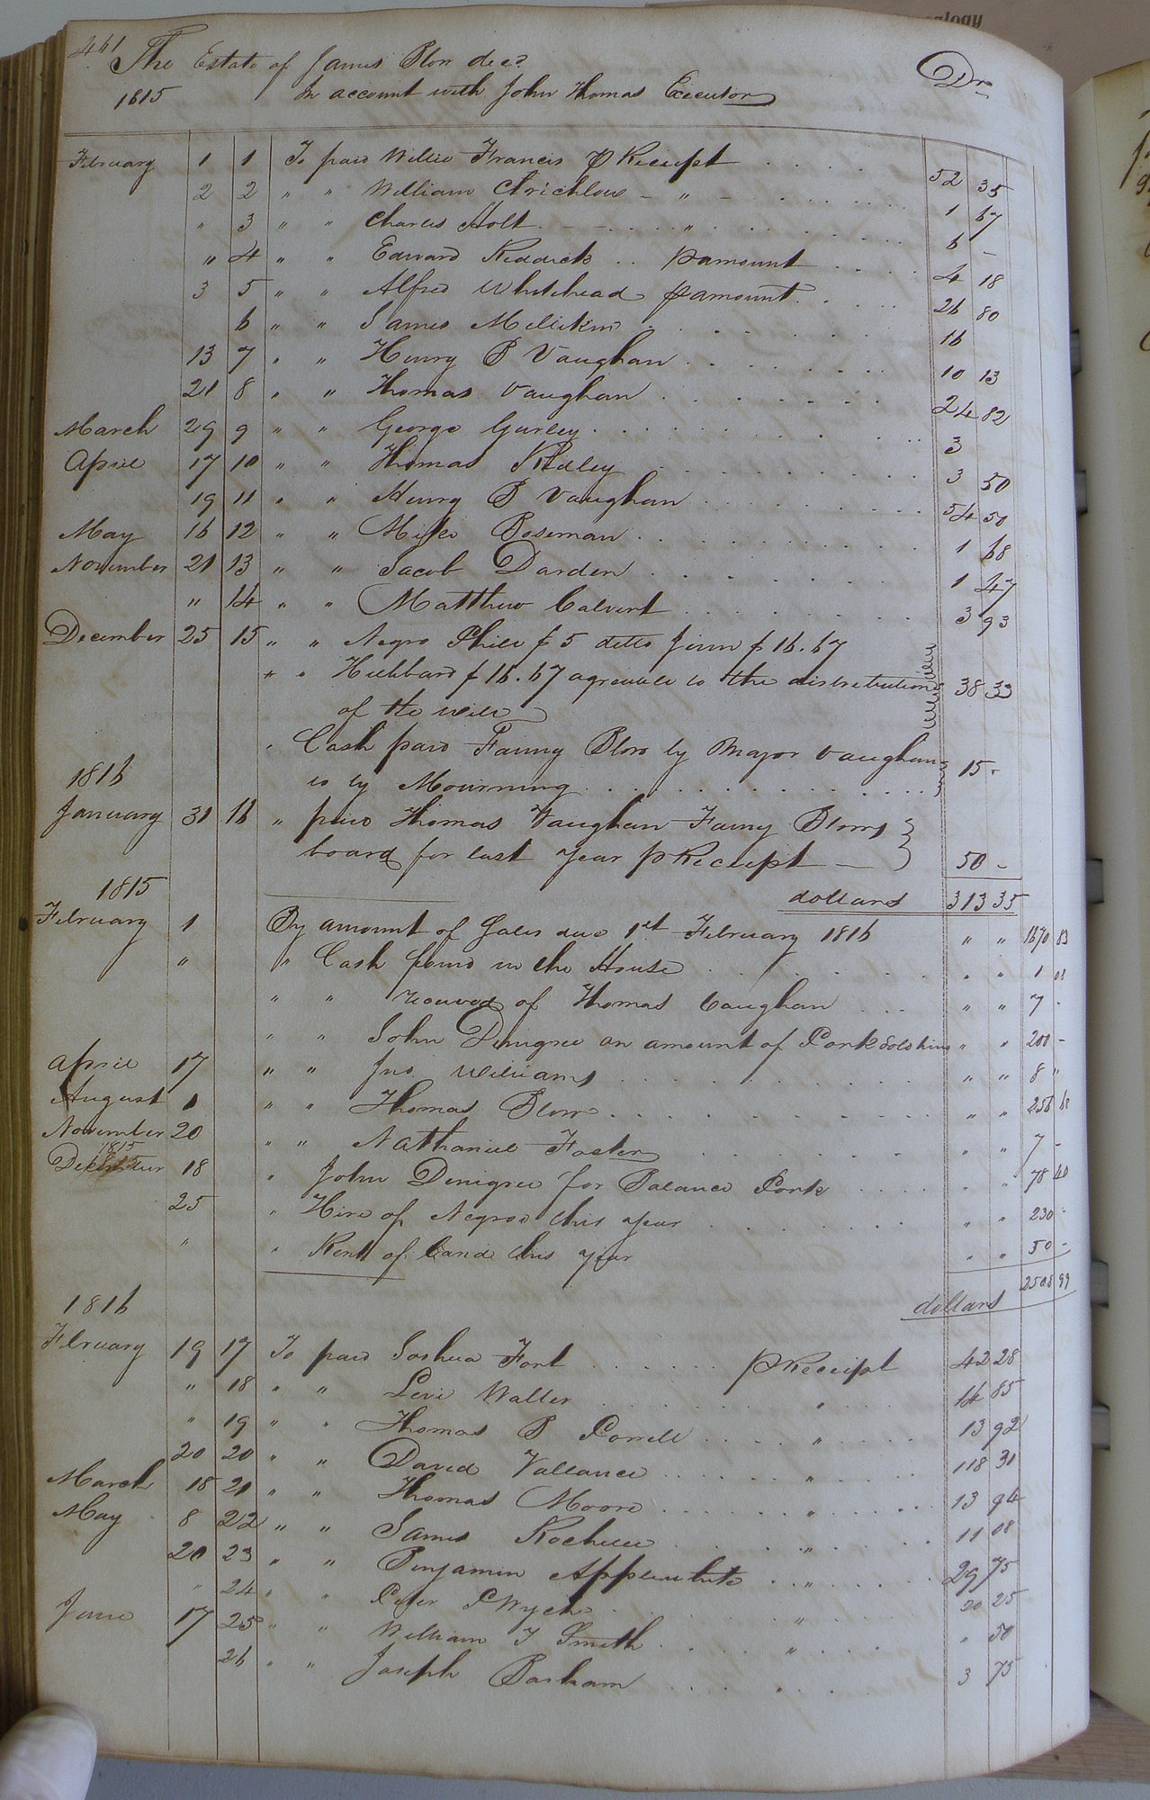 461 The Estate of James Blow decd Drs
1815 In account with John Thomas Executor
February 1 1 To paid Willie Francis p Receipt 52 35
2 2 " " William Crichlow - " - 1 67
" 3 " " Charles Holt " 6 -
" 4 " " Edward Riddick p amount 4 18
3 5 " " Alfred Whitehead p amount 26 80
6 " " James Millikin 16
13 7 " " Henry B Vaughan 10 13
21 8 " " Thomas Vaughan 24 82
March 29 9 " " George Gurley 3
April 17 10 " " Thomas Ridley 3 50
19 11 " " Henry B Vaughan 54 50
May 16 12 " " Miles Boseman 1 68
November 21 13 " " Jacob Darden 1 47
" 14 " " Matthew Calvert 3 93
December 25 15 " " Negro Phill $ 5 ditto Jinn $ 16.67
" " Hubbard $ 16.67 agreeable to the distribution 38 33
of the will
" Cash paid Fanny Blow by Major Vaughan 15 -
1816 by Mourning
January 31 16 " paid Thomas Vaughan Fanny Blows
board for last year p Receipt 50 -
1815 dollars 313 35
February 1 By amount of Sales due 1st February 1816 " " 1670 83
" " Cash found in the House " " 1
" " received of Thomas Vaughan " " 7 -
" " John Denigree on amount of Pork sold him " " 200 -
April 17 " " Jno Williams " " 8 "
August 1 " " Thomas Blow " " 256
November 20 " " Nathaniel Foster " " 7 -
1815
December 18 " John Denigree for Balance Pork " " 78 40
25 " Hire of Negroes this year " " 230 -
" " Rent of Land this year " " 50 -
1816 dollars 2508 99
February 19 17 To paid Joshua Fort p Receipt 42 28
" 18 " " Levi Waller " 14 85
" 19 " " Thomas B Correll " 13 92
20 20 " " David Vallance " 118 31
March 18 21 " " Thomas Moore " 13 94
May 8 22 " " James Rochelle " 11 08
20 23 " " Benjamin Applewhite " 29 75
" 24 " " Peter P Wyche " 20 25
June 17 25 " " William T Smith " " 50
26 " " Joseph Barham 3 75